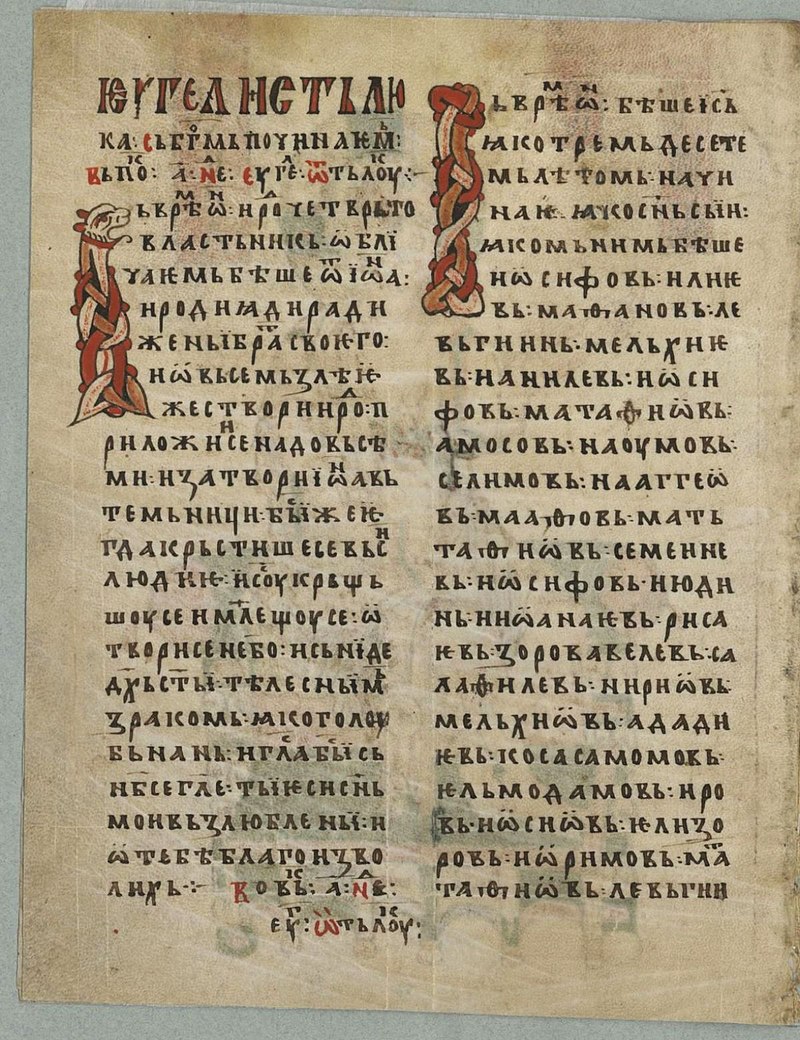 ѤУГЕЛИСТЬ ЛѸ
КА: СЬ БГ҃МЬ ПОЧИНАЕМ:
ВЬ ПО҃: А҃: НЕ: ЕУГЕ: Ѿ ТЬ ЛОУ:
ЬВРѢѠ: ИРО ЧЕТВРЬТО
ВЛАСТЬНИКЬ: ѠБЛІ
ЧАѤМЬ БѢШЕ Ѿ ІѠА:
ИРОДИꙖДИ РАДИ
ЖЕНЫ БРА СВОѤГО:
И Ѡ ВЬСЕМЬ ЗЛѢ Ѥ
ЖЕ СТВОРИ ИРО: П
РИЛОЖИ СЕ НАДО ВЬСѢ
МИ: И ЗАТВОРИ ІѠА ВЬ
ТЕМЬНИЦИ: БЫ ЖЕ Ѥ
ГДА КРЬСТИШЕ СЕ ВЬС
ЛЮДИѤ: И С҃ОУ КРЬЩЬ
ШОУ СЕ И МЛЕЩОУ СЕ: Ѡ
ТВОРИ СЕ НЕБО: И СЬНІДЕ
ДХ҃Ь СТ҃Ы: ТѢЛЕСНЫМ
ЗРАКОМЬ: ꙖКО ГОЛОУ
БЬ НА НЬ: И ГЛА БЫ СЬ
НБ҃СЕ ГЛЕ: ТЫ ѤСИ СН҃Ь
МОИ ВЬЗЛЮБЛЕНЫ: И
Ѡ ТЕБѢ БЛАГОИЗВО
ЛИХЬ: ВО ВЬ: А҃: НЕ:
ЕУ: Ѿ ТЬ ЛОУ:
ЬВРѢѠ: БѢШЕ ІСЬ
ꙖКО ТРЕМЬДЕСЕТЕ
МЬ ЛѢТОМЬ: НАЧИ
НАѤ: ꙖКО СН҃Ь СЫИ:
ꙖКО МЬНИМЬ БѢШЕ
ИѠСИФОВЬ: ИЛИѤ
ВЬ: МАТѲАНОВЬ: ЛЕ
ВЬГИИНЬ: МЕЛЬХИѤ
ВЬ: НАНИЛЕВЬ: ИѠСИ
ФОВЬ: МАТАѲИѠВЬ:
АМОСОВЬ: НАОУМОВЬ:
СЕЛИМОВЬ: НААГГЕѠ
ВЬ: МААѲОВЬ: МАТЬ
ТАѲИѠВЬ: СЕМЕИНЕ
ВЬ: ИѠСИФОВЬ: ИЮДИ
НЬ: ИИѠАНАѤВЬ: РИСА
ѤВЬ: ЗОРОВАВЕЛЕВЬ: СА
ЛАѲИЛЕВЬ: НИРИѠВЬ:
МЕЛЬХИѠВЬ: АДАДИ
ѤВЬ: КОСАСАМОМОВЬ:
ѤЛЬМОДАМОВЬ: ИРО
ВЬ: ИѠСИѠВЬ: ѤЛИЗО
РОВЬ: ИѠРИМОВЬ: МАТ
ТАѲИѠВЬ: ЛЕВЬГИИ